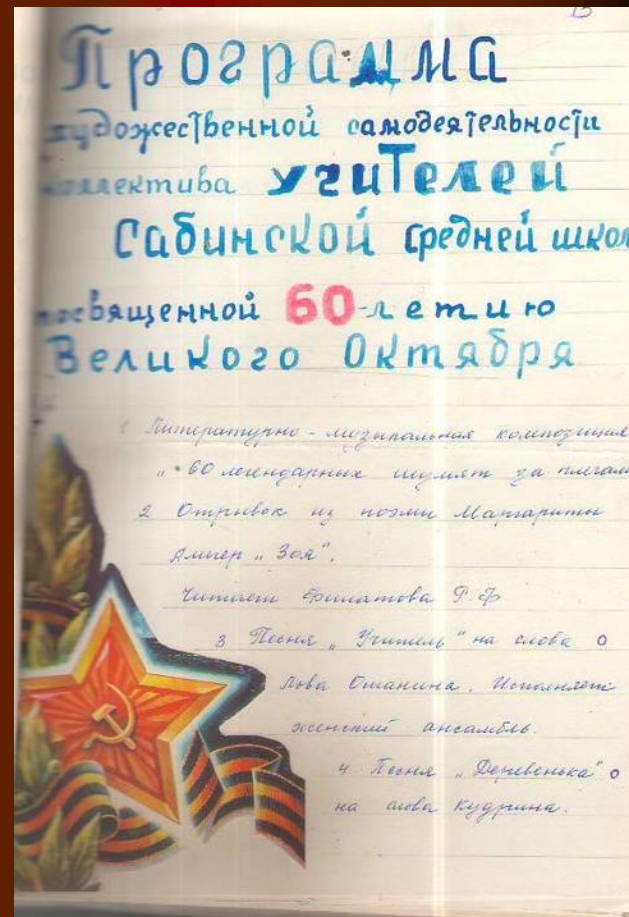 13
Программа
художественной самодеятельности
коллектива учителей
Сабинской средней школ
посвященной 60-летию
Великого Октября
1 Литературно-музыкальная композиция
„60 легендарных шумят за плечам
2 Отрывок из поэмы Маргариты
Алигер „Зоя".
Читает Филатова Р.Ф
3 Песня „Учитель" на слова
Льва Ошанина. Исполняет
женский ансамбль.
4 Песня „Деревенька"
на слова Кудрина.